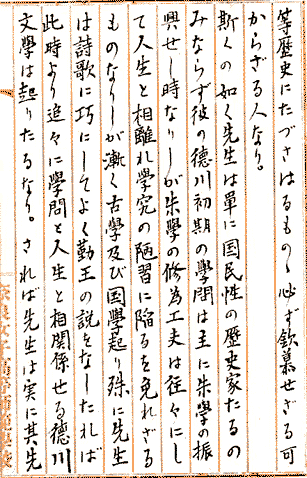 等歴史にたづさはるもの、必ず欽慕せざる可
からざる人なり。
斯くの如く先生は單に国民性の歴史家たるの
みならず彼の徳川初期の學問は主に朱學の振
興せし時なりしが朱學の修為工夫は往々にし
て人生と相離れ學究の陋習に陥るを免れざる
ものなりしが漸く古學及び国學起り殊に先生
は詩歌に巧にしてよく勤王の説をなしたれば
此時より追々に學問と人生と相関係せる徳川
文學は起りたるなり。されば先生は実に其先